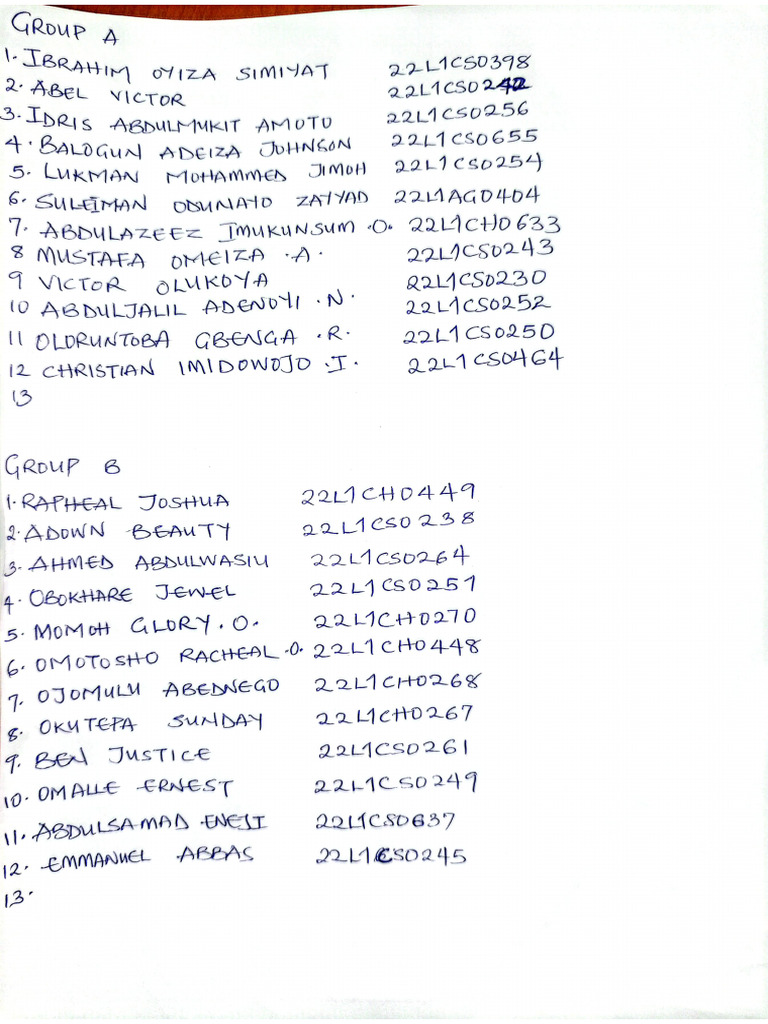 GROUP A
1. IBRAHIM OYIZA SIMIYAT 22L1CS0398
2. ABEL VICTOR 22L1CS0242
3. IDRIS ABDULMUKIT AMOTO 22L1CS0256
4. BALOGUN ADEIZA JOHNSON 22L1CS0655
5. LUKMAN MOHAMMED JIMOH 22L1CS0254
6. SULEIMAN ODUNAYO ZAYYAD 22L1AG0404
7. ABDULAZEEZ IMUKUNSUM .O. 22L1CH0633
8 MUSTAFA OMEIZA .A. 22L1CS0243
9 VICTOR OLUKOYA 22L1CS0230
10 ABDULJALIL ADENOYI .N. 22L1CS0252
11 OLORUNTOBA GBENGA .R. 22L1CS0250
12 CHRISTIAN IMIDOWOJO .I. 22L1CS0464
13
GROUP B
1. RAPHEAL JOSHUA 22L1CH0449
2. ADOWN BEAUTY 22L1CS0238
3. AHMED ABDULWASIU 22L1CS0264
4. OBOKHARE JEWEL 22L1CS0251
5. MOMOH GLORY.O. 22L1CH0270
6. OMOTOSHO RACHEAL .O. 22L1CH0448
7. OJOMULU ABEDNEGO 22L1CH0268
8. OKUTEPA SUNDAY 22L1CH0267
9. BEN JUSTICE 22L1CS0261
10. OMALLE ERNEST 22L1CS0249
11. ABDULSAMAD ENEJI 22L1CS0637
12. EMMANUEL ABBAS 22L1CS0245
13.